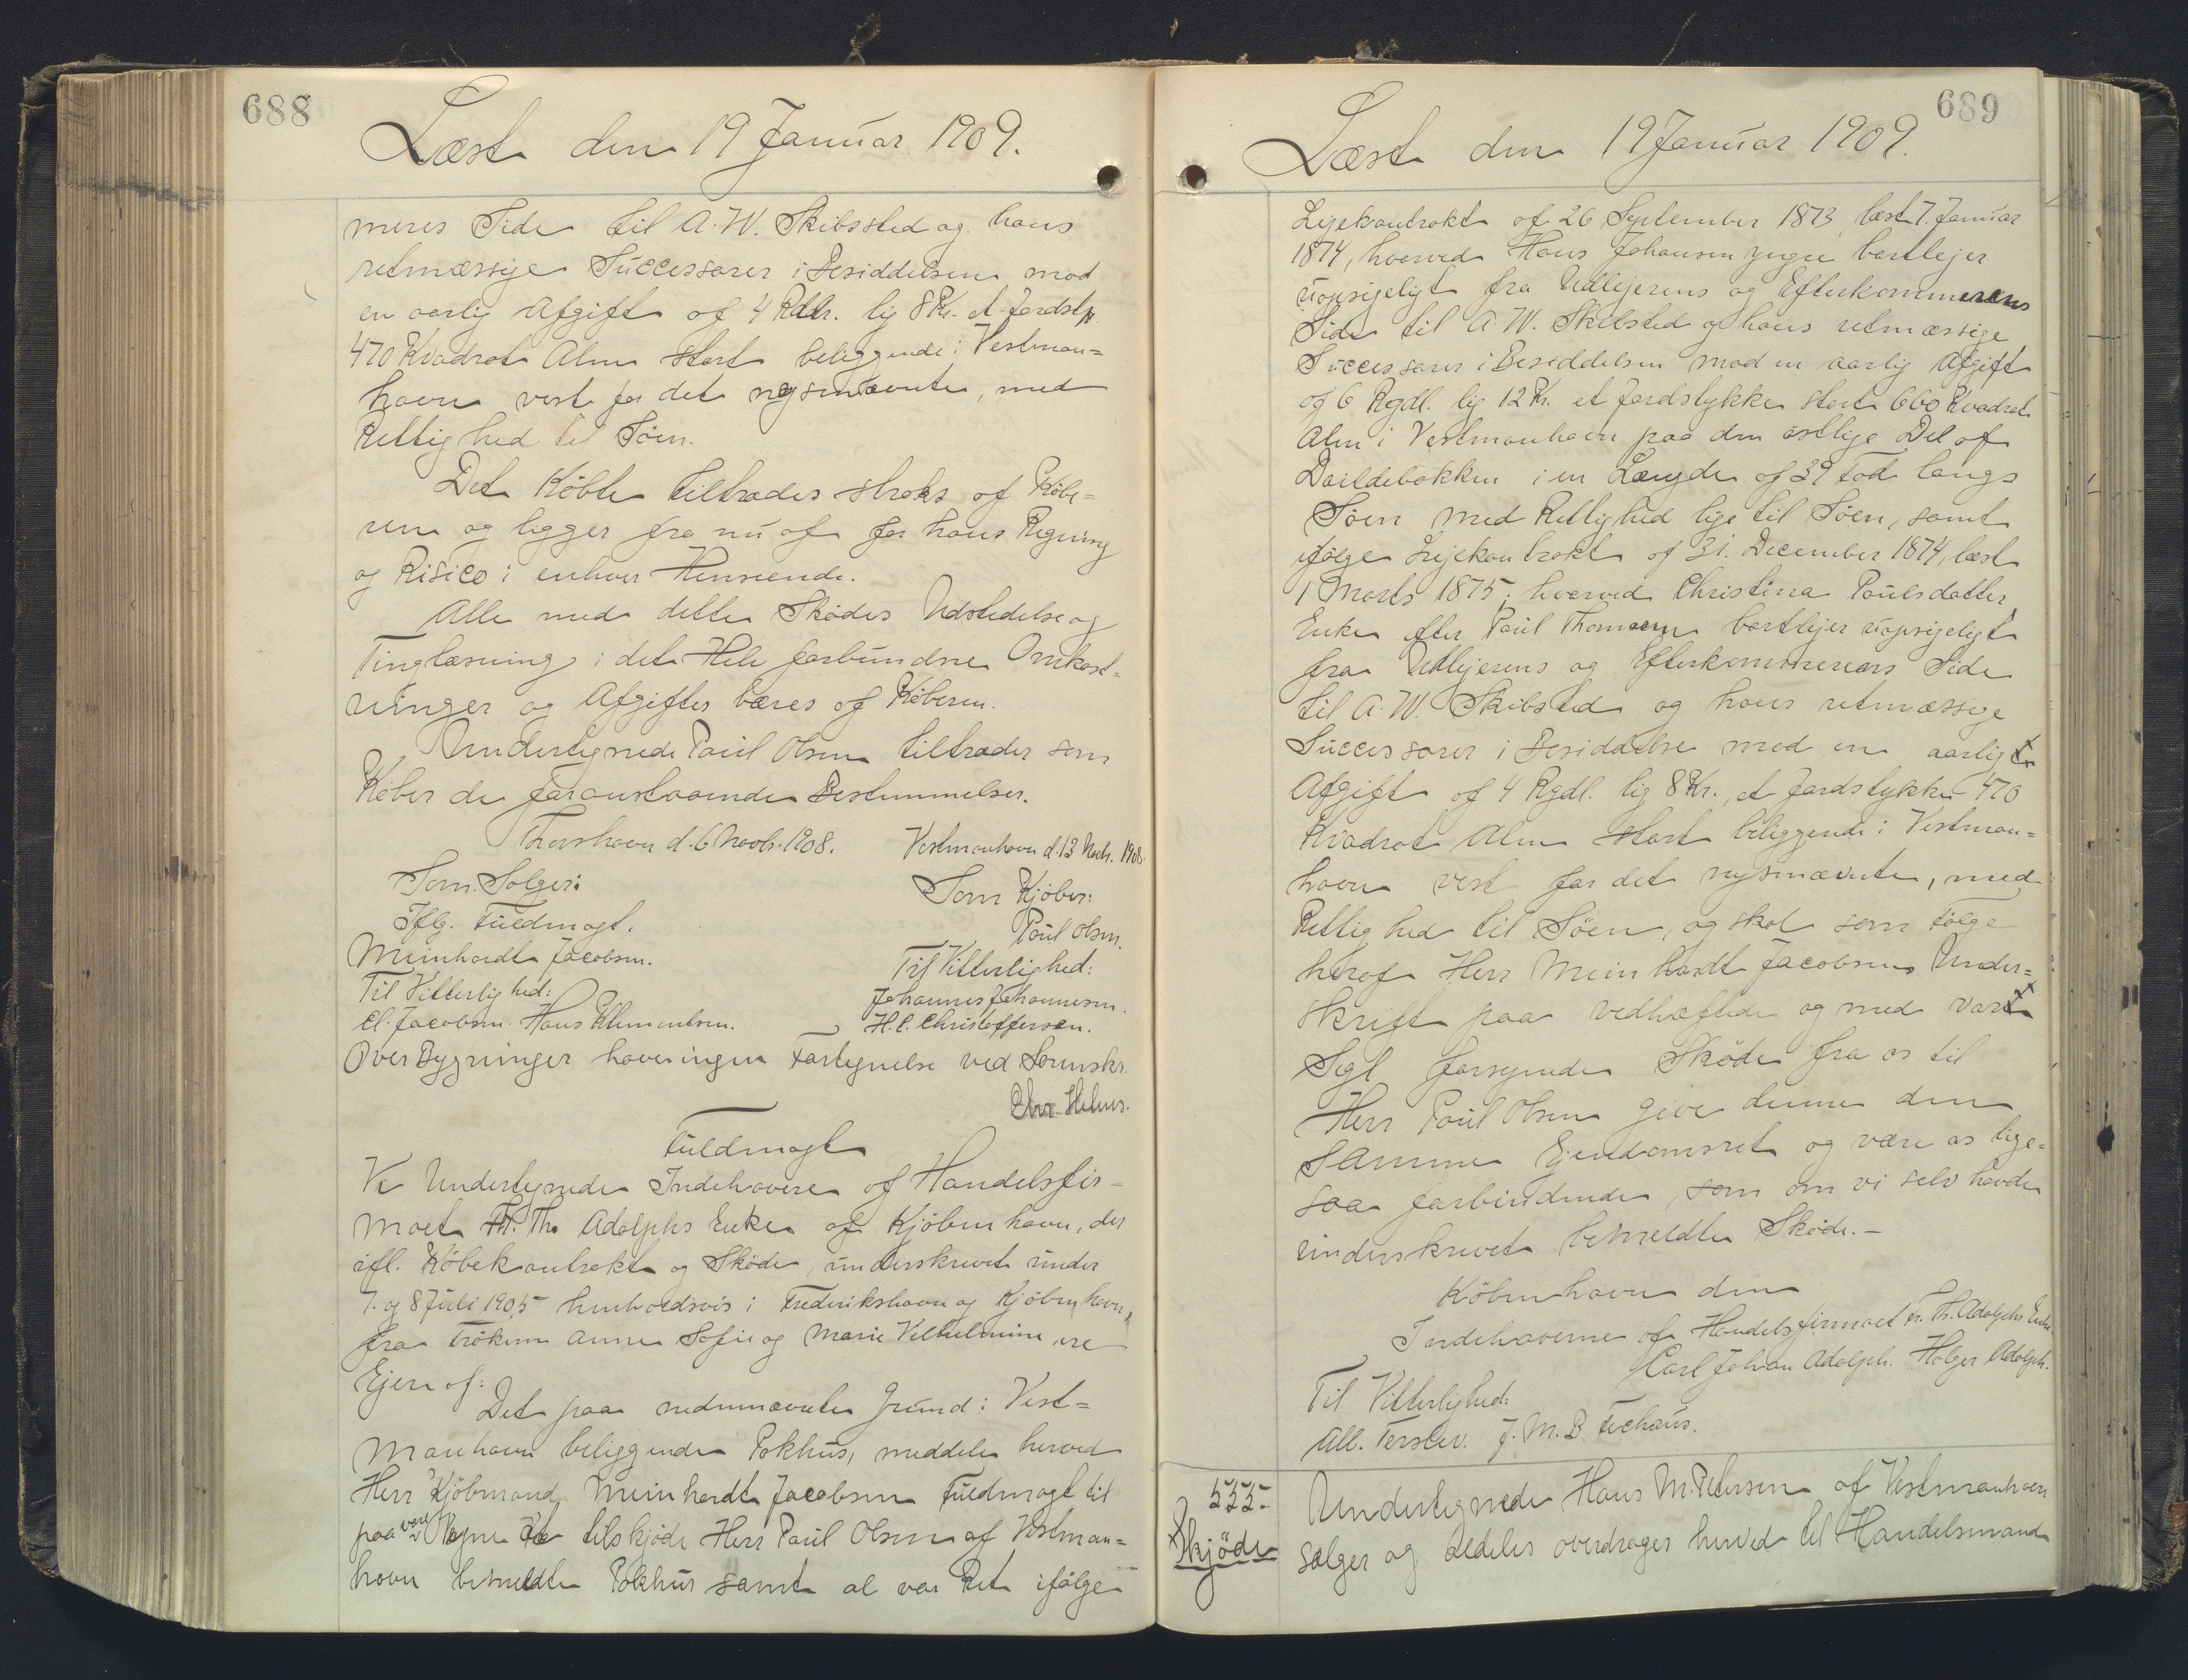 688
Læst den 19 Januar 1909.
meres Side til A. W. Skibsted og hans
retmæssige Successorer i Besiddelsen mod
en aarlig Afgift af 4 Rdlr. lig 8 Kr. et Jordstk.
470 Kvadrat Alen stort beliggende i Vestman=
havn vest for det nysnævnte, med
Rettighed til Söen.
Det Köbte tiltrædes straks af Köbe=
ren og ligger fra nu af for hans Regning
og Risico i enhver Henseende.
Alle med dette Sködes Udstedelse og
Tinglæsning i det Hele forbundne Omkost=
ninger og Afgifter bæres af Köberen.
Undertegnede Poul Olsen tiltræder som
Köber de foranstaaende Bestemmelser.
Thorshavn d. 6 Novb. 1908. Vestmanhavn d. 13 Novb. 1908.
Som Sælger: Som Kjöber:
Iflg. Fuldmagt. Poul Olsen.
Meinhardt Jacobsen. Til Vitterlighed:
Til Vitterlighed: Johannes Johannesen.
Cl. Jacobsen. Hans Klementsen. H. C. Christoffersen.
Over Bygninger haves ingen Fortegnelse ved Sorensk.
Chr. Helms.
Fuldmagt
Vi Undertegnede Indehavere af Handelsfir=
maet Fr. Th. Adolphs Enke af Kjöbenhavn, der
ifl. Köbekontrakt og Sköde, underskrevet under
7. og 8 Juli 1905 henholdsvis i Frederikshavn og Kjöbenhavn,
fra Frökene Anne Sofie og Marie Vilhelmine ere
Ejere af:
Det paa nedennævnte Grund i Vest=
manhavn beliggende Pakhus, meddele herved
Herr Kjöbmand Meinhardt Jacobsen Fuldmagt til
paa vore Vegne at tilskjöde Herr Poul Olsen af Vestman=
havn bemeldte Pakhus samt al vor Ret ifölge
689
Læst den 19 Januar 1909.
Lejekontrakt af 26 September 1873, læst 7. Januar
1874, hvorved Hans Johansen yngre bortlejer
uopsigeligt fra Udlejerens og Efterkommerens
Side til A. W. Skibsted og hans retmæssige
Successorer i Besiddelsen mod en aarlig Afgift
af 6 Rgdl. lig 12 Kr. et Jordstykke stort 660 Kvadrat
Alen i Vestmanhavn paa den östlige Del af
Darldebakken i en Længde af 39 Fod langs
Söen med Rettighed lige til Söen, samt
ifölge Lejekontrakt af 31. December 1874, læst
1 Marts 1875, hvorved Christina Poulsdatter,
Enke efter Poul Thomsen bortlejer uopsigeligt
fra Udlejerens og Efterkommerens Side
til A. W. Skibsted og hans retmæssige
Successorer i Besiddelse mod en aarlig
Afgift af 4 Rgdl. lig 8 Kr., et Jordstykke 470
Kvadrat Alen stort beliggende i Vestman=
havn vest for det nysnævnte, med
Rettighed til Söen, og skal som Fölge
heraf Herr Meinhardt Jacobsens Under=
skrift paa vedhæftede og med vort
Segl forsynede Sköde fra os til
Herr Poul Olsen give denne den
samme Ejendomsret og være os lige=
saa forbindende, som om vi selv havde
underskrevet bemeldte Sköde.-
Köbenhavn den
Indehaverne af Handelsfirmaet Fr. Th. Adolphs Enke.
Carl Johan Adolph. Holger Adolph.
Til Vitterlighed:
Alb. Terslev. J. M. B. Fechaus.
535.
Skjöde
Undertegnede Hans M. Petersen af Vestmanhavn
sælger og aldeles overdrager herved til Handelsmand